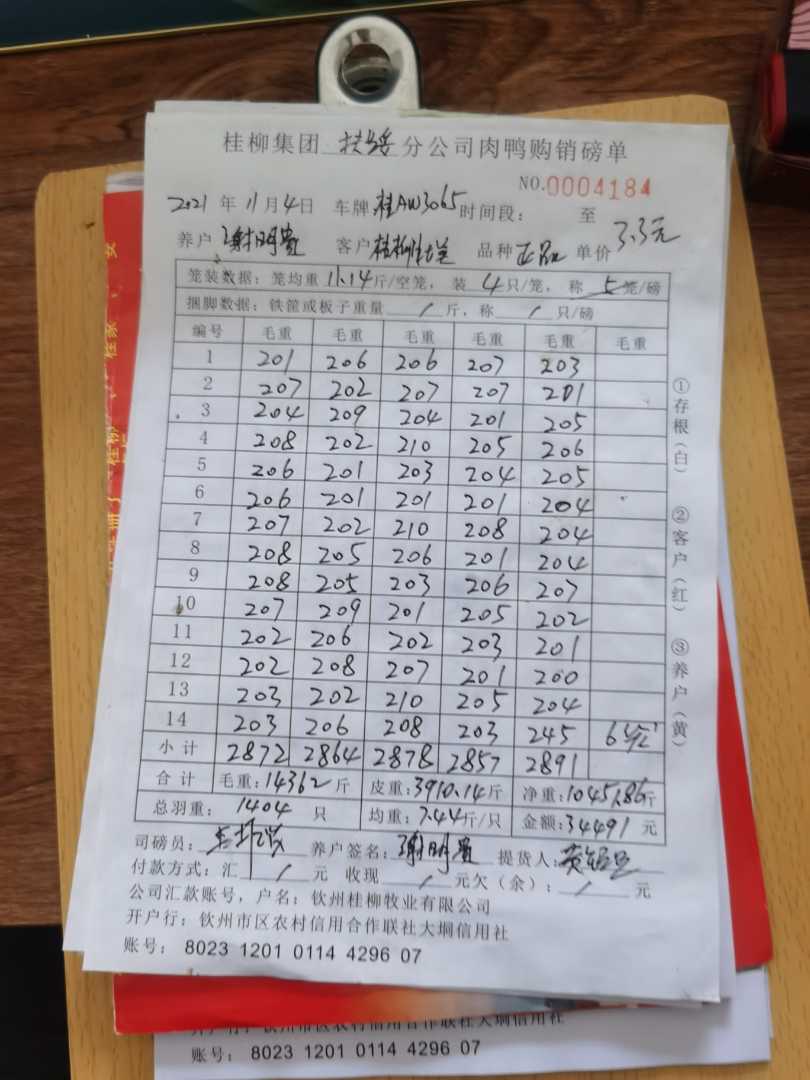 桂柳集团 扶绥 分公司肉鸭购销磅单
NO.0004184
2021 年 11 月 4 日 车牌 桂AW3065 时间段: 至
养户 谢明贵 客户 桂柳 品种 正品 单价 3.3元
笼装数据: 笼均重 11.14 斤/空笼, 装 4 只/笼, 称 5 笼/磅
捆脚数据: 铁筐或板子重量 / 斤, 称 / 只/磅
编号 毛重 毛重 毛重 毛重 毛重 毛重
1 201 206 206 207 203
2 207 202 207 207 201
3 204 209 204 201 205
4 208 202 210 205 206
5 206 201 203 204 205
6 206 201 201 201 204
7 207 202 210 208 204
8 208 205 206 201 204
9 208 205 203 206 207
10 207 209 201 205 202
11 202 206 202 203 201
12 202 208 207 201 200
13 203 202 210 205 204
14 203 206 208 203 245 6笼
小计 2872 2864 2878 2857 2891
合计 毛重: 14362 斤 皮重: 3910.14 斤 净重: 10451.86 斤
总羽重: 1404 只 均重: 7.44 斤/只 金额: 34491 元
司磅员: 养户签名: 谢明贵 提货人:
付款方式: 汇 / 元 收现 / 元欠(余): / 元
公司汇款账号, 户名: 钦州桂柳牧业有限公司
开户行: 钦州市区农村信用合作联社大垌信用社
账号: 8023 1201 0114 4296 07
①存根(白) ②客户(红) ③养户(黄)
开户行: 钦州市区农村信用合作联社大垌信用社
账号: 8023 1201 0114 4296 07